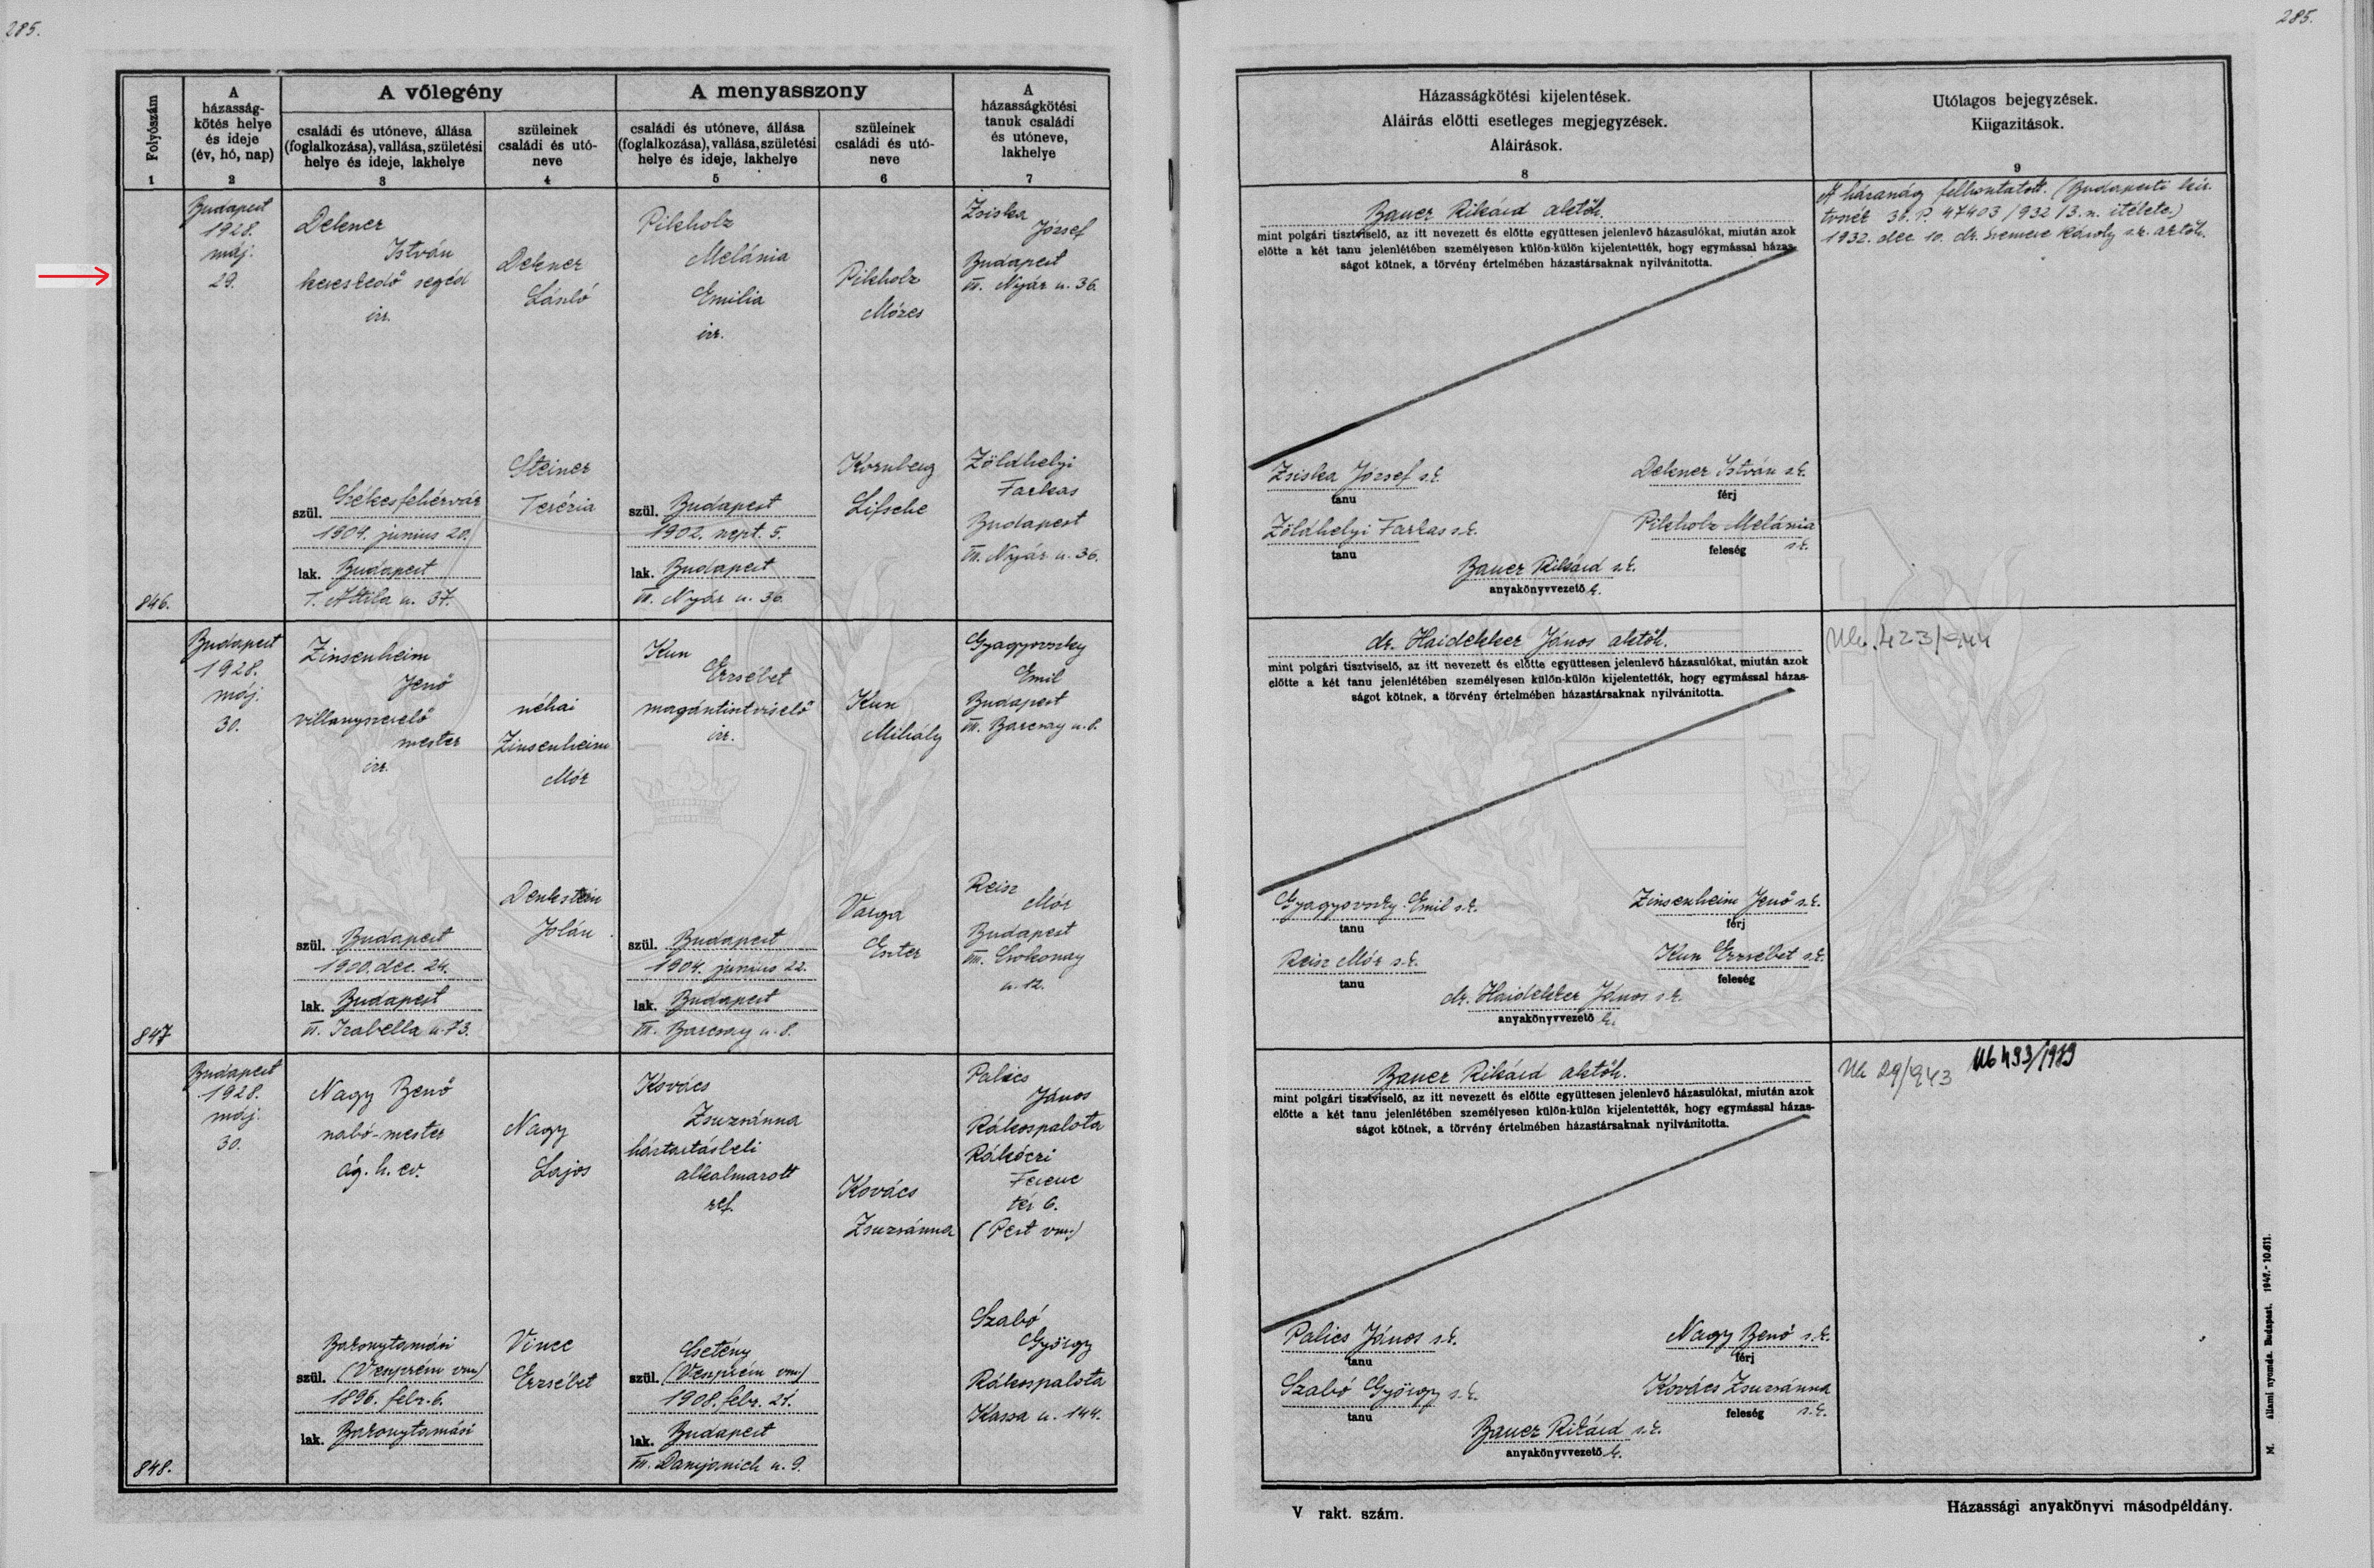 285.
285.
Folyószám
A
házasság-
kötés helye
és ideje
(év, hó, nap)
A vőlegény
családi és utóneve, állása
(foglalkozása), vallása, születési
helye és ideje, lakhelye
szüleinek
családi és utó-
neve
A menyasszony
családi és utóneve, állása
(foglalkozása), vallása, születési
helye és ideje, lakhelye
szüleinek
családi és utó-
neve
A
házasságkötési
tanuk családi
és utóneve,
lakhelye
1
2
3
4
5
6
7
Házasságkötési kijelentések.
Aláírás előtti esetleges megjegyzések.
Aláírások.
8
Utólagos bejegyzések.
Kiigazitások.
9
846.
Budapest
1928.
máj.
29.
Dekner
István
kereskedő segéd
izr.
szül. Székesfehérvár
1904. junius 20.
lak. Budapest
I. Attila u. 37.
Dekner
László
Steiner
Terézia
Pikholz
Melánia
Emilia
izr.
szül. Budapest
1902. szept. 5.
lak. Budapest
VII. Nyár u. 36.
Pikholz
Mózes
Kornberg
Lifsche
Zsiska
József
Budapest
VII. Nyár u. 36.
Zöldhelyi
Farkas
Budapest
VII. Nyár u. 36.
Bauer Rikárd aktőh.
mint polgári tisztviselő, az itt nevezett és előtte együttesen jelenlevő házasulókat, miután azok
előtte a két tanu jelenlétében személyesen külön-külön kijelentették, hogy egymással házas-
ságot kötnek, a törvény értelmében házastársaknak nyilvánitotta.
Zsiska József s.k.
tanu
Dekner István s.k.
férj
Zöldhelyi Farkas s.k.
tanu
Pikholz Melánia
s.k.
feleség
Bauer Rikárd s.k.
anyakönyvvezető h.
A házasság felbontatott. (Budapesti kir.
tvszék 36. P. 47403/932/3. sz. itélete.)
1932. dec 10. dr. Károly s.k. aktőh.
847
Budapest
1928.
máj.
30.
Zinsenheim
Jenő
villanyszerelő
mester
izr.
szül. Budapest
1900. dec. 24.
lak. Budapest
VI. Izabella u. 73.
néhai
Zinsenheim
Mór
Denkstein
Jolán
Kun
Erzsébet
magántisztviselő
izr.
szül. Budapest
1904. junius 22.
lak. Budapest
VII. Barcsay u. 8.
Kun
Mihály
Varga
Eszter
Gyagyovszky
Emil
Budapest
VII. Barcsay u. 8.
Reisz
Mór
Budapest
VIII. Csokonay
u. 12.
dr. Haidekker János aktőh.
mint polgári tisztviselő, az itt nevezett és előtte együttesen jelenlevő házasulókat, miután azok
előtte a két tanu jelenlétében személyesen külön-külön kijelentették, hogy egymással házas-
ságot kötnek, a törvény értelmében házastársaknak nyilvánitotta.
Gyagyovszky Emil s.k.
tanu
Zinsenheim Jenő s.k.
férj
Reisz Mór s.k.
tanu
Kun Erzsébet s.k.
feleség
dr. Haidekker János s.k.
anyakönyvvezető h.
848.
Budapest
1928.
máj.
30.
Nagy Benő
szabó-mester
ág. h. ev.
Bakonytamási
szül. (Veszprém vm)
1896. febr. 6.
lak. Bakonytamási
Nagy
Lajos
Vince
Erzsébet
Kovács
Zsuzsánna
háztartásbeli
alkalmazott
ref.
Csetény
szül. (Veszprém vm)
1908. febr. 21.
lak. Budapest
VII. Damjanich u. 9.
Kovács
Zsuzsánna
Palics
János
Rákospalota
Rákóczi
Ferenc
tér 6.
(Pest vm)
Szabó
György
Rákospalota
Kassa u. 144.
Bauer Rikárd aktőh.
mint polgári tisztviselő, az itt nevezett és előtte együttesen jelenlevő házasulókat, miután azok
előtte a két tanu jelenlétében személyesen külön-külön kijelentették, hogy egymással házas-
ságot kötnek, a törvény értelmében házastársaknak nyilvánitotta.
Palics János s.k.
tanu
Nagy Benő s.k.
férj
Szabó György s.k.
tanu
Kovács Zsuzsánna
s.k.
feleség
Bauer Rikárd s.k.
anyakönyvvezető h.
Uk 29/943
V rakt. szám.
Házassági anyakönyvi másodpéldány.
M. állami nyomda. Budapest. 1947.- 10.611.